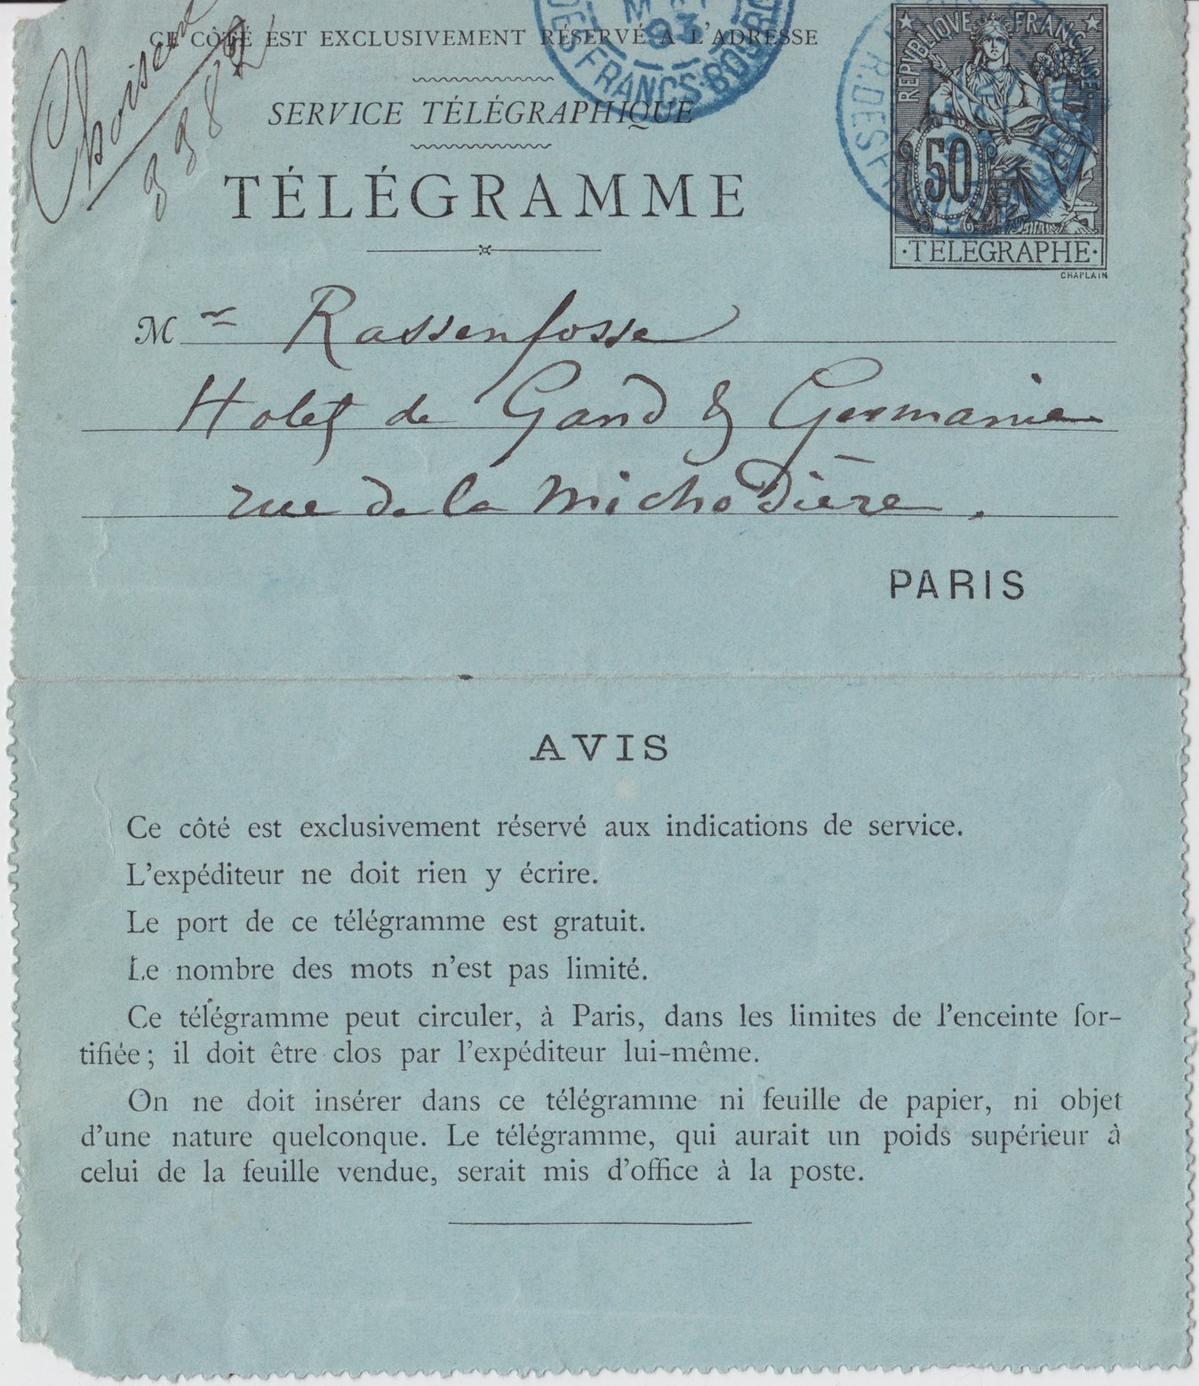 Choiseul
CE CÔTÉ EST EXCLUSIVEMENT RÉSERVÉ A L'ADRESSE
93
DES FRANCS-BOURG
SERVICE TÉLÉGRAPHIQUE
TÉLÉGRAMME
RÉPUBLIQUE FRANÇAISE
50
R. DES F
·TELEGRAPHE·
CHAPLAIN
Mr Rassenfosse
Hotel de Gand & Germanie
rue de la Michodière.
PARIS
AVIS
Ce côté est exclusivement réservé aux indications de service.
L'expéditeur ne doit rien y écrire.
Le port de ce télégramme est gratuit.
Le nombre des mots n'est pas limité.
Ce télégramme peut circuler, à Paris, dans les limites de l'enceinte for-
tifiée; il doit être clos par l'expéditeur lui-même.
On ne doit insérer dans ce télégramme ni feuille de papier, ni objet
d'une nature quelconque. Le télégramme, qui aurait un poids supérieur à
celui de la feuille vendue, serait mis d'office à la poste.